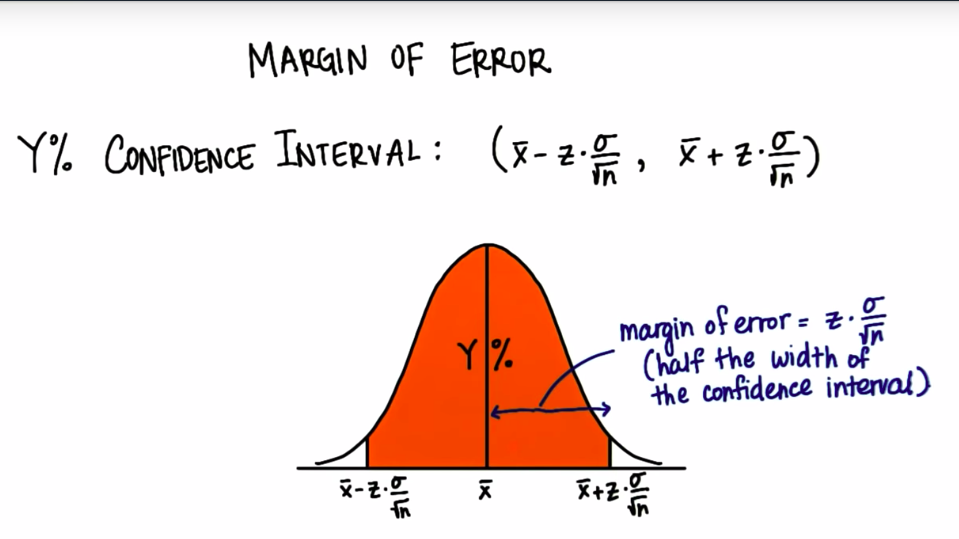 MARGIN OF ERROR
Y% CONFIDENCE INTERVAL: (x̄ - z·σ/√n, x̄ + z·σ/√n)
margin of error = z·σ/√n
(half the width of
the confidence interval)
Y%
x̄ - z·σ/√n x̄ x̄ + z·σ/√n